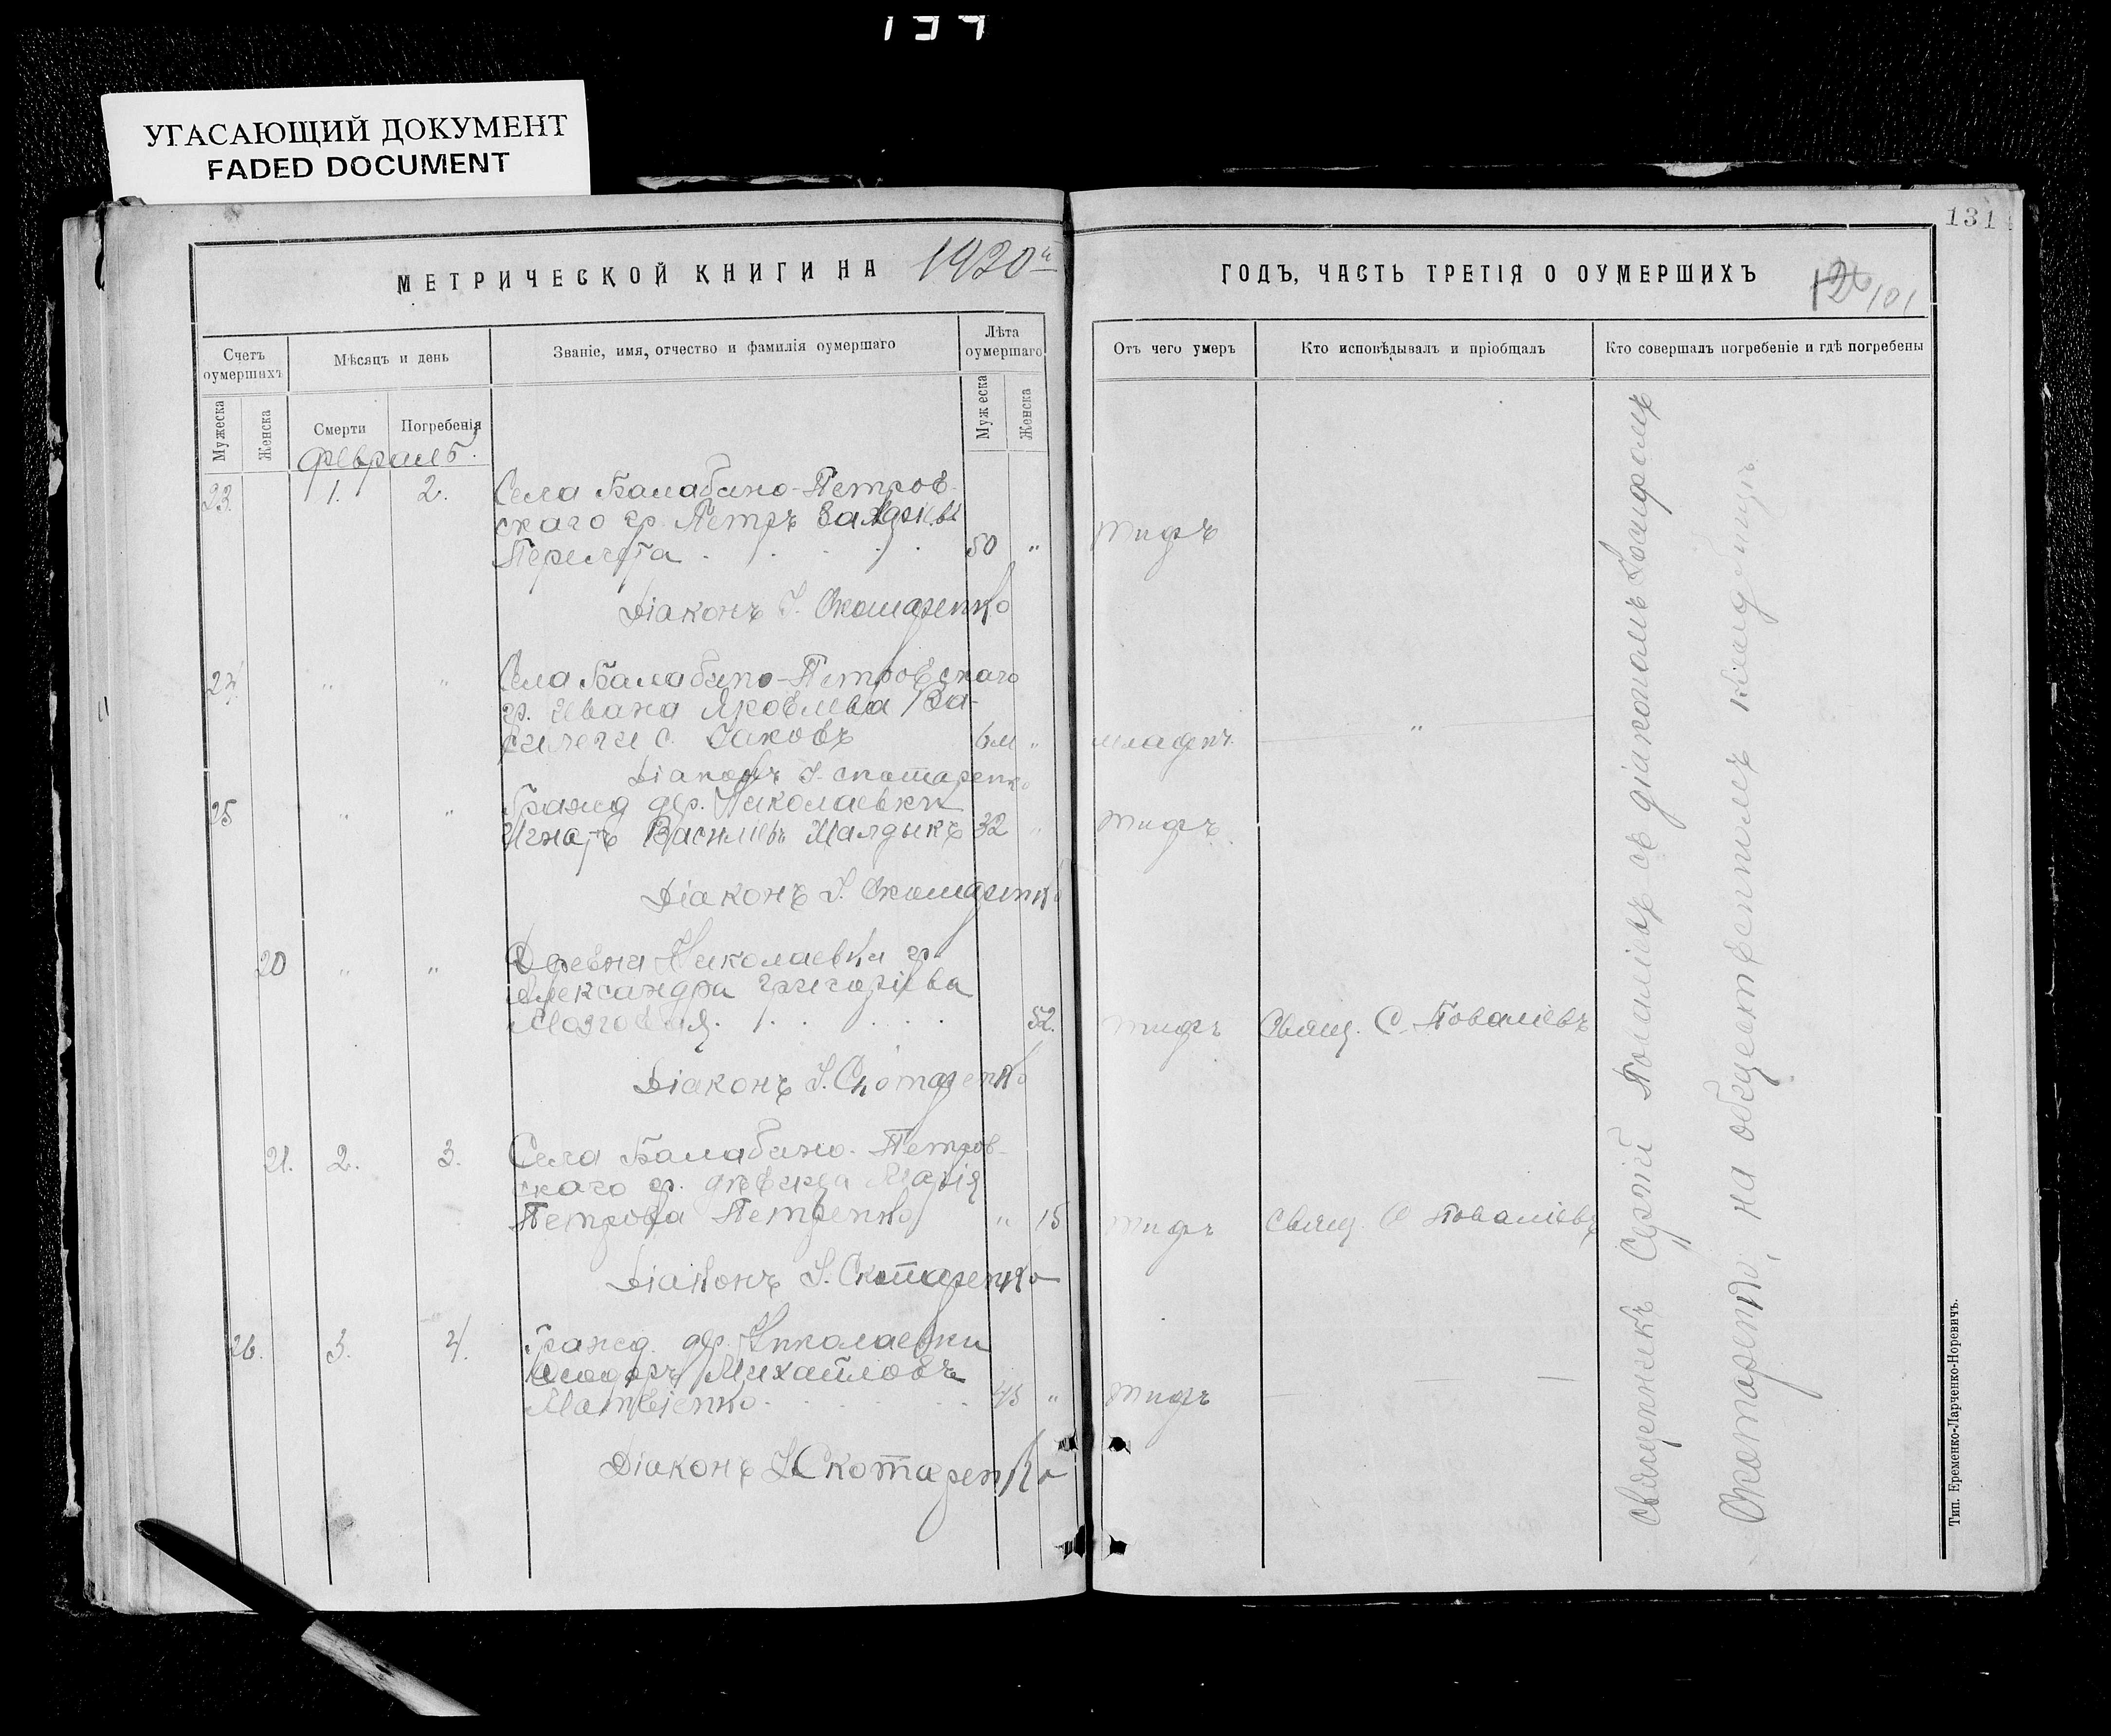 УГАСАЮЩИЙ ДОКУМЕНТ
FADED DOCUMENT
131
МЕТРИЧЕСКОЙ КНИГИ НА 1920й
ГОДЪ, ЧАСТЬ ТРЕТІЯ О ОУМЕРШИХЪ
101
Счетъ оумершихъ
Мѣсяцъ и день
Званіе, имя, отчество и фамилія оумершаго
Лѣта оумершаго
Отъ чего умеръ
Кто исповѣдывалъ и пріобщалъ
Кто совершалъ погребеніе и гдѣ погребены
Мужеска
Женска
Смерти
Погребенія
Мужеска
Женска
Февраль.
23. 1. 2. Села Балабано-Петров-
скаго гр. Петръ
50 " тифъ
Діаконъ І. Скотаренко
24 " " Села Балабано-Петровскаго
гр. Ивана Яковлева Ва-
с. Іаковъ 6 м " младен. "
Діаконъ І. Скотаренко
25 " " Гражд. дер. Николаевки
Игнатъ Василіевъ 32 " тифъ
Діаконъ І. Скотаренко
20 " " Деревни Николаевки гр.
Александра Григоріева
52. тифъ Свящ. С. Поваліевъ
Діаконъ І. Скотаренко
21. 2. 3. Села Балабано-Петров-
скаго гр. дѣвица Марія
Петрова Петренко " 15 тифъ Свящ. С. Поваліевъ
Діаконъ І. Скотаренко
26. 3. 4. Гражд. дер. Николаевки
Михайловъ
Матвіенко 45 " тифъ
Діаконъ І. Скотаренко
Священникъ Сергій Поваліевъ съ діакономъ
Скотаренко, на общественномъ кладбищѣ
Тип. Еременко-Ларченко-Норевичъ.